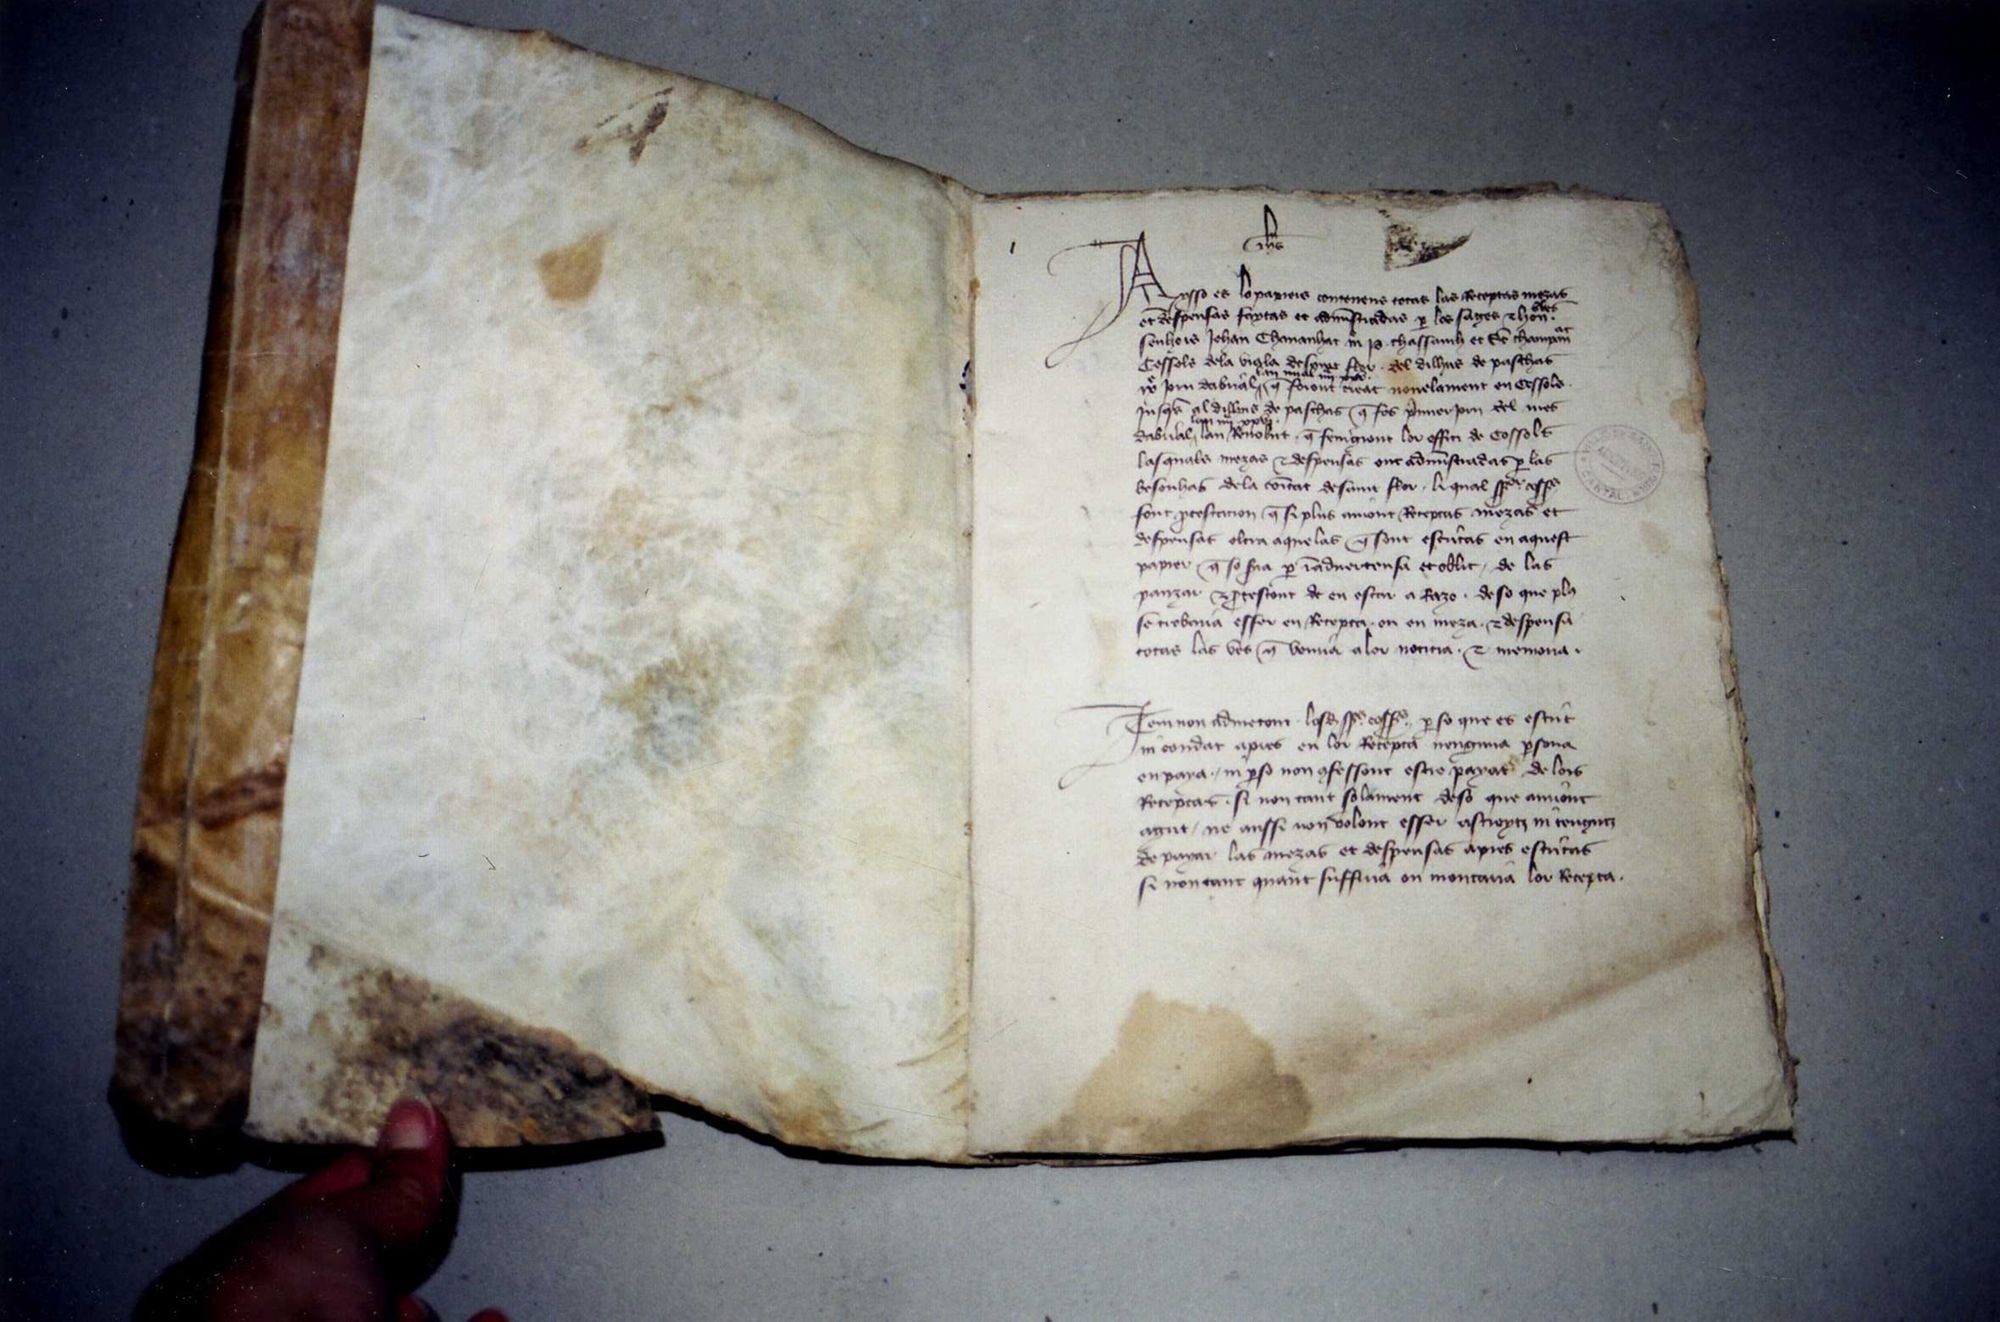 ihs
Aysso es lo papieis contenens totas las Receptas mezas
et despensas faytas et administradas p los sages z hon
senhors Johan Chananhat
Cossols dela viala de sant flor. del dilhus de paschas
jorn dabrial q foront creat novelament en cossols.
jusqs al dilhus de paschas q fos primier jorn del mes
dabrial lan Revolut. q feniziont lor offici de Cossols
lasquals mezas z despensas ont administradas p las
besonhas dela coitat de sant flor. li qual
font protestation q si plus aviont Receptas mezas et
despensas oltra aquelas q sont escritas en aquest
papier q so sia per inadvertensa et oblit, de las
pauzar z protestont de en escrir a Razo. de so que pla
se trobaria esser en Recepta. ou en meza. z despensa
totas las ves q venria a lor noticia. z memoria.
Item non admetont. losd. p so que es escrit
ni condat apres en lor Recepta nenguna psona
en paya. ni p so non cofessont estre payat de lors
Receptas. si non tant solament deso que auriont
agut, ne aussi non volont esser astreytz ni tengutz
de payar las mezas et despensas apres escritas
si non tant quant suffiria ou montaria lor Recepta.
CANTAL